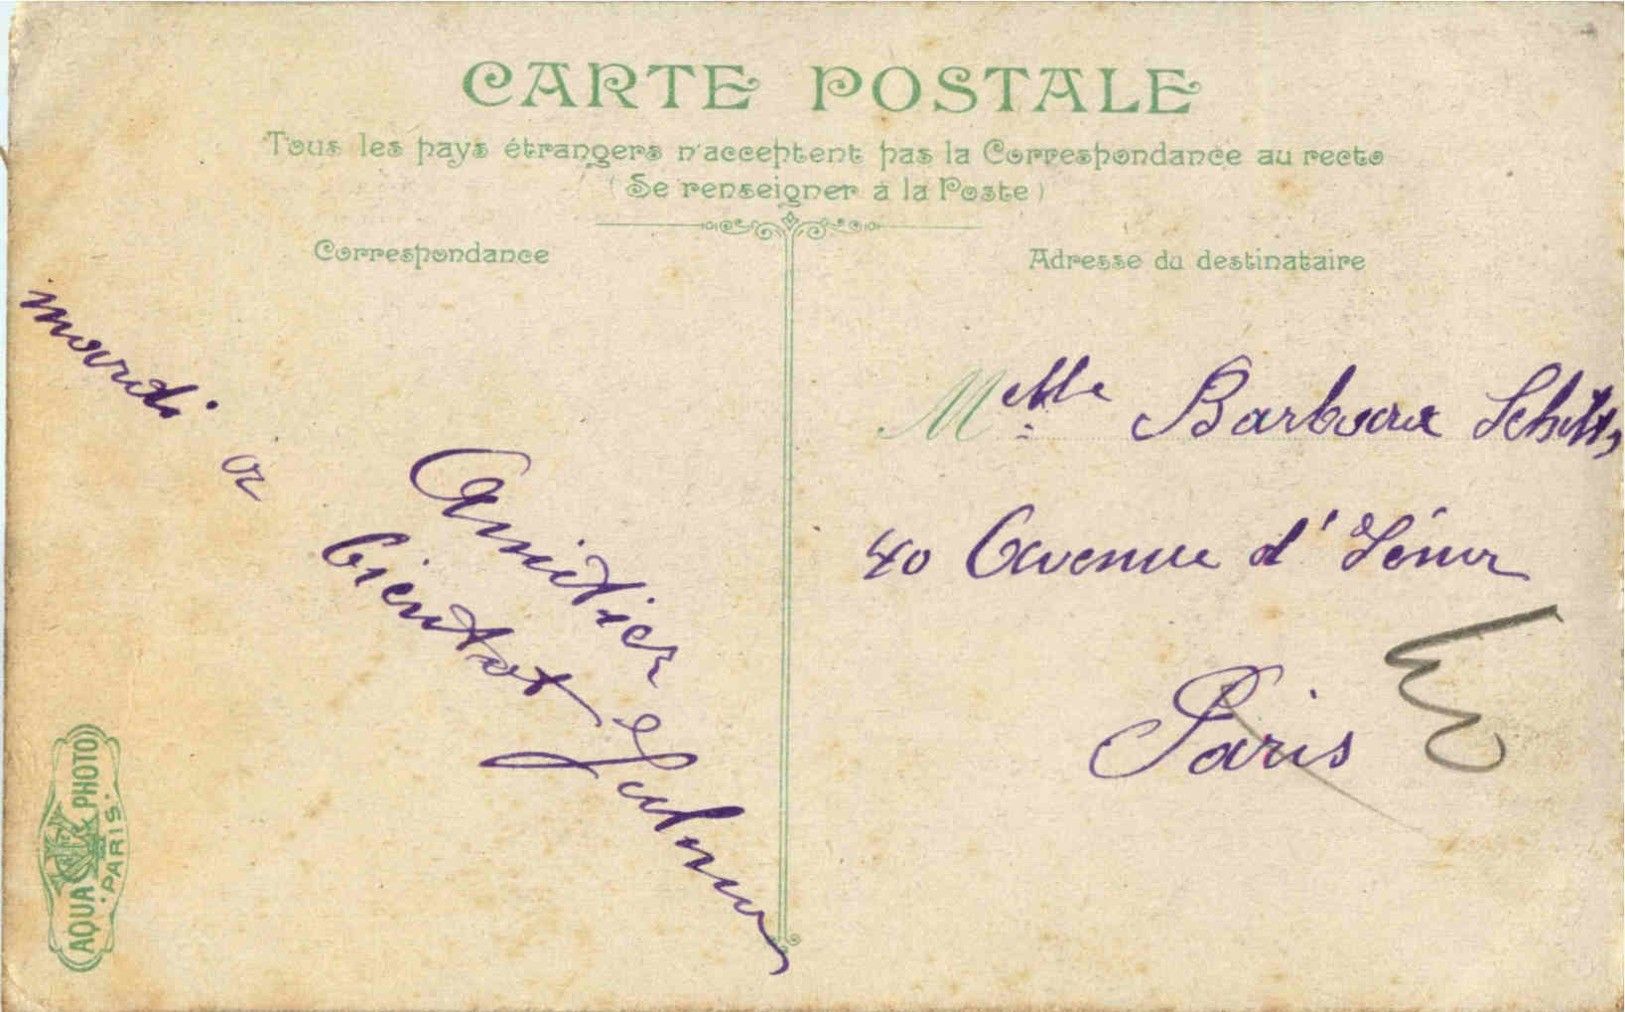 CARTE POSTALE
Tous les pays étrangers n'acceptent pas la Correspondance au recto
(Se renseigner à la Poste)
Correspondance
mardi
a
bientot
Amitiez
Adresse du destinataire
Melle Barbara
40 Avenue d'Iéna
Paris
AQUA PHOTO
PARIS